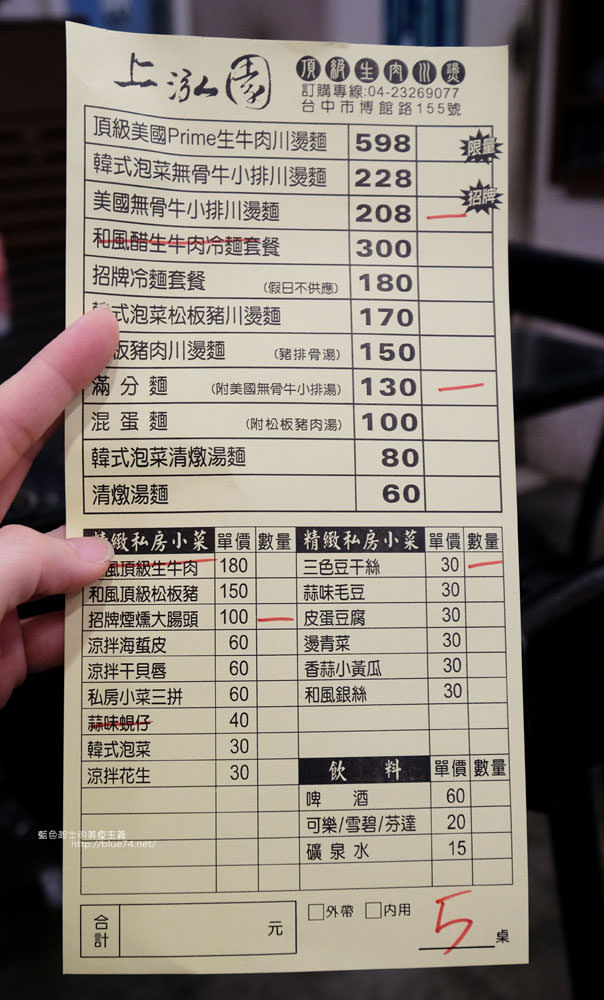 上泓園 頂級生肉川燙
訂購專線:04-23269077
台中市博館路155號
頂級美國Prime生牛肉川燙麵 598 限量
韓式泡菜無骨牛小排川燙麵 228
美國無骨牛小排川燙麵 208 招牌
和風醋生牛肉冷麵套餐 300
招牌冷麵套餐 (假日不供應) 180
式泡菜松板豬川燙麵 170
板豬肉川燙麵 (豬排骨湯) 150
滿分麵 (附美國無骨牛小排湯) 130
混蛋麵 (附松板豬肉湯) 100
韓式泡菜清燉湯麵 80
清燉湯麵 60
精緻私房小菜 單價 數量
風頂級生牛肉 180
和風頂級松板豬 150
招牌煙燻大腸頭 100
涼拌海蜇皮 60
涼拌干貝唇 60
私房小菜三拼 60
蒜味蜆仔 40
韓式泡菜 30
涼拌花生 30
精緻私房小菜 單價 數量
三色豆干絲 30
蒜味毛豆 30
皮蛋豆腐 30
燙青菜 30
香蒜小黃瓜 30
和風銀絲 30
飲料 單價 數量
啤酒 60
可樂/雪碧/芬達 20
礦泉水 15
合計 元
□外帶 □內用 5 桌
藍色起士的美食主義
http://blue74.net/